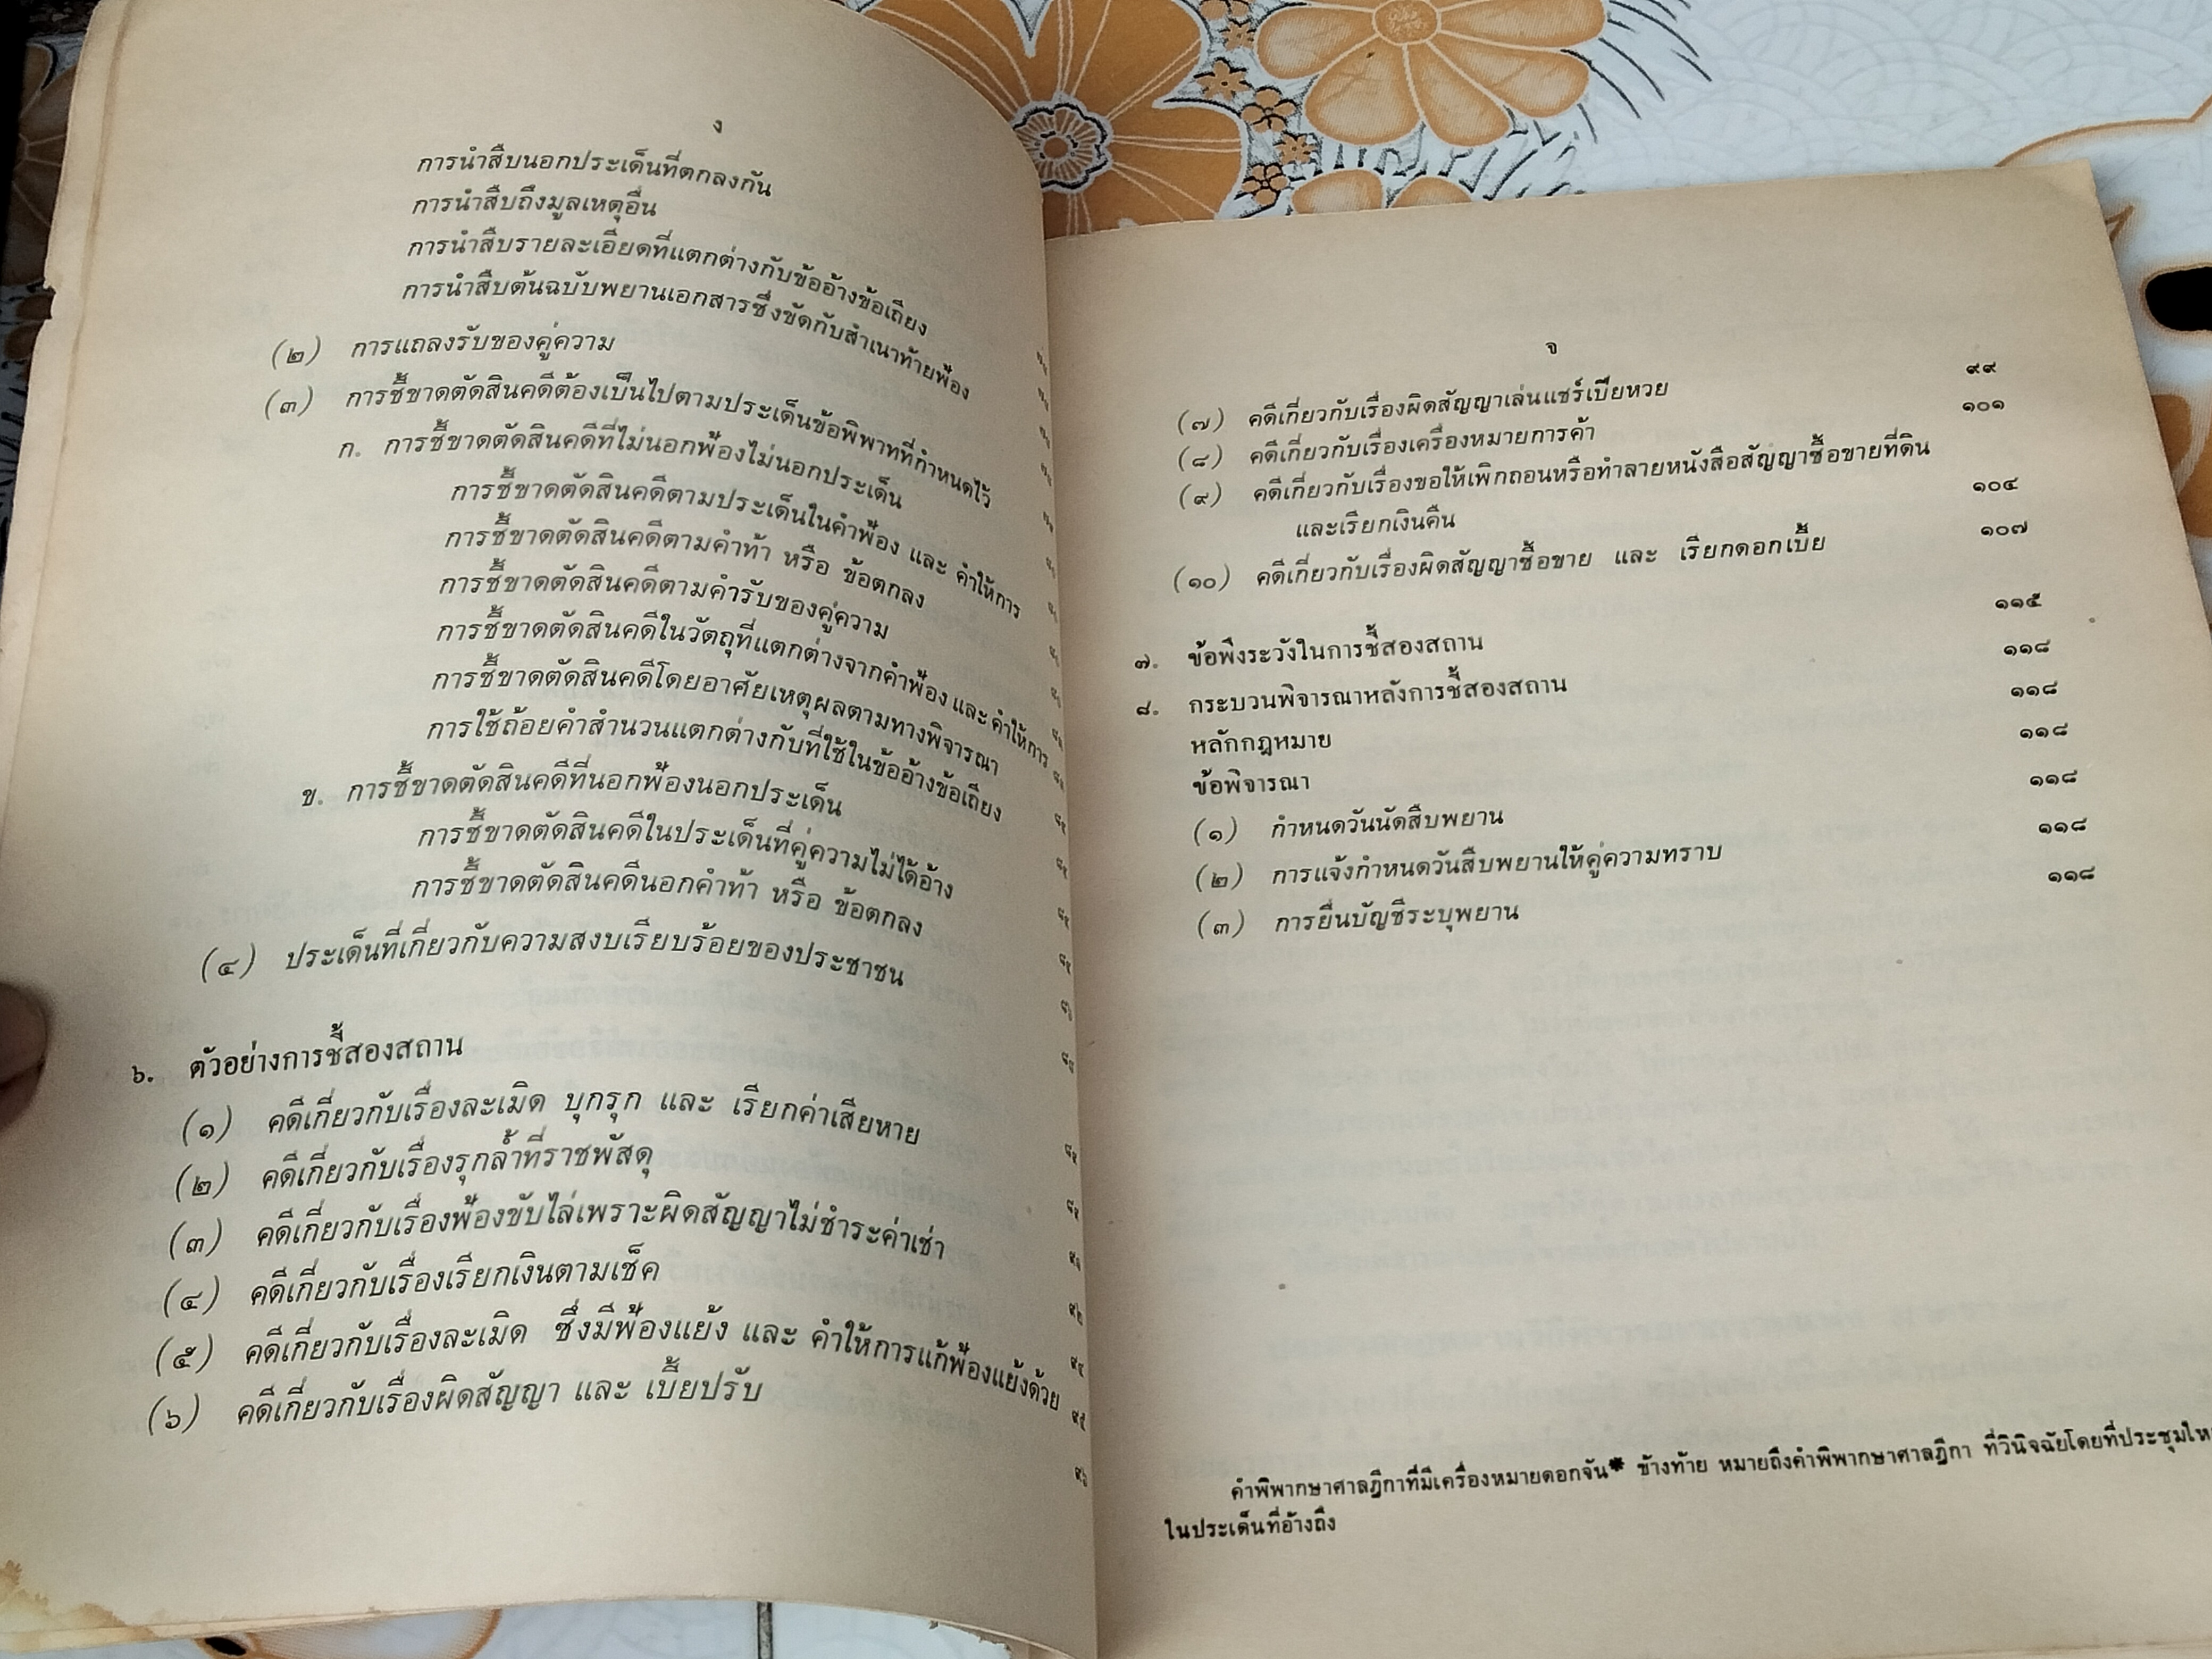 ง
การนำสืบนอกประเด็นที่ตกลงกัน
การนำสืบถึงมูลเหตุอื่น
การนำสืบรายละเอียดที่แตกต่างกับข้ออ้างข้อเถียง
การนำสืบต้นฉบับพยานเอกสารซึ่งขัดกับสำเนาท้ายฟ้อง
(๒) การแถลงรับของคู่ความ
(๓) การชี้ขาดตัดสินคดีต้องเป็นไปตามประเด็นข้อพิพาทที่กำหนดไว้
ก. การชี้ขาดตัดสินคดีที่ไม่นอกฟ้องไม่นอกประเด็น
การชี้ขาดตัดสินคดีตามประเด็นในคำฟ้อง และ คำให้การ
การชี้ขาดตัดสินคดีตามคำท้า หรือ ข้อตกลง
การชี้ขาดตัดสินคดีตามคำรับของคู่ความ
การชี้ขาดตัดสินคดีในวัตถุที่แตกต่างจากคำฟ้อง และ คำให้การ
การชี้ขาดตัดสินคดีโดยอาศัยเหตุผลตามทางพิจารณา
การใช้ถ้อยคำสำนวนแตกต่างกับที่ใช้ในข้ออ้างข้อเถียง
ข. การชี้ขาดตัดสินคดีที่นอกฟ้องนอกประเด็น
การชี้ขาดตัดสินคดีในประเด็นที่คู่ความไม่ได้อ้าง
การชี้ขาดตัดสินคดีนอกคำท้า หรือ ข้อตกลง
(๔) ประเด็นที่เกี่ยวกับความสงบเรียบร้อยของประชาชน
๖. ตัวอย่างการชี้สองสถาน
(๑) คดีเกี่ยวกับเรื่องละเมิด บุกรุก และ เรียกค่าเสียหาย
(๒) คดีเกี่ยวกับเรื่องรุกล้ำที่ราชพัสดุ
(๓) คดีเกี่ยวกับเรื่องฟ้องขับไล่เพราะผิดสัญญาไม่ชำระค่าเช่า
(๔) คดีเกี่ยวกับเรื่องเรียกเงินตามเช็ค
(๕) คดีเกี่ยวกับเรื่องละเมิด ซึ่งมีฟ้องแย้ง และ คำให้การแก้ฟ้องแย้งด้วย
(๖) คดีเกี่ยวกับเรื่องผิดสัญญา และ เบี้ยปรับ
จ
(๗) คดีเกี่ยวกับเรื่องผิดสัญญาเล่นแชร์เปียหวย ๙๙
(๘) คดีเกี่ยวกับเรื่องเครื่องหมายการค้า ๑๐๑
(๙) คดีเกี่ยวกับเรื่องขอให้เพิกถอนหรือทำลายหนังสือสัญญาซื้อขายที่ดิน
และเรียกเงินคืน ๑๐๔
(๑๐) คดีเกี่ยวกับเรื่องผิดสัญญาซื้อขาย และ เรียกดอกเบี้ย ๑๐๗
๗. ข้อพึงระวังในการชี้สองสถาน ๑๑๕
๘. กระบวนพิจารณาหลังการชี้สองสถาน ๑๑๘
หลักกฎหมาย ๑๑๘
ข้อพิจารณา ๑๑๘
(๑) กำหนดวันนัดสืบพยาน ๑๑๘
(๒) การแจ้งกำหนดวันสืบพยานให้คู่ความทราบ ๑๑๘
(๓) การยื่นบัญชีระบุพยาน ๑๑๘
คำพิพากษาศาลฎีกาที่มีเครื่องหมายดอกจัน* ข้างท้าย หมายถึงคำพิพากษาศาลฎีกา ที่วินิจฉัยโดยที่ประชุมให
ในประเด็นที่อ้างถึง